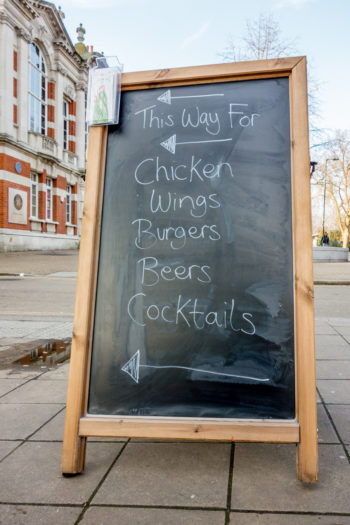 This Way For
Chicken
Wings
Burgers
Beers
Cocktails